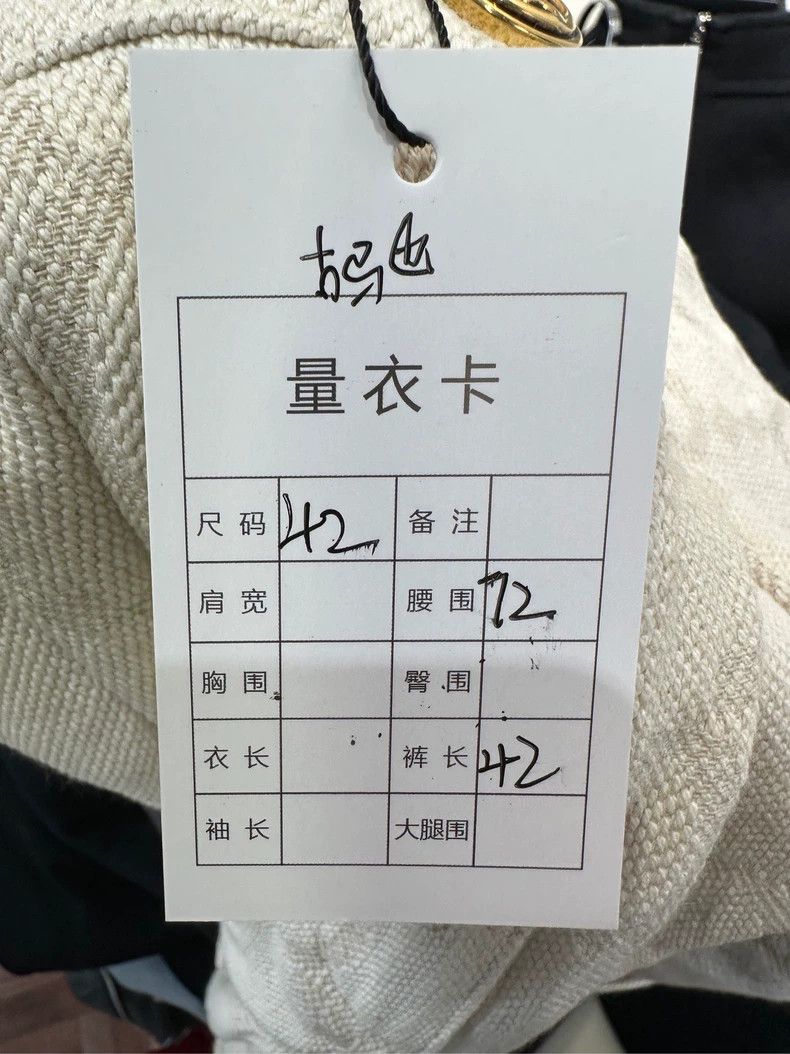 量衣卡
尺码 42 备注
肩宽 腰围 72
胸围 臀围
衣长 裤长 42
袖长 大腿围